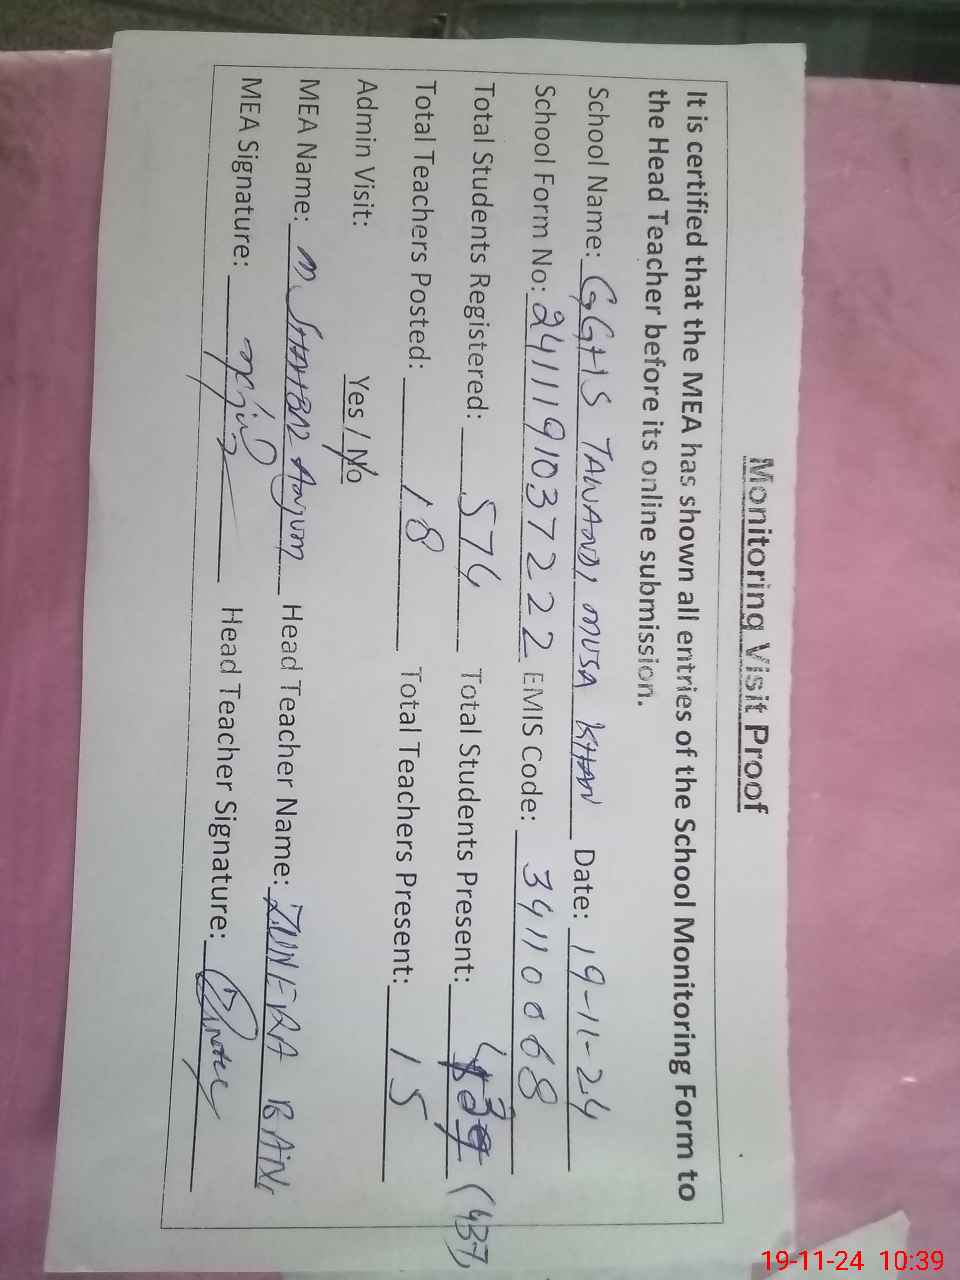 Monitoring Visit Proof
It is certified that the MEA has shown all entries of the School Monitoring Form to
the Head Teacher before its online submission.
School Name: GGHS TAWANDI MUSA KHAN Date: 19-11-24
School Form No: 2411191037222 EMIS Code: 34110068
Total Students Registered: 574 Total Students Present: (437)
Total Teachers Posted: 18 Total Teachers Present: 15
Admin Visit: Yes / No
MEA Name: M. SHAHBAZ Anjum Head Teacher Name: ZUNERA BANI
MEA Signature: Head Teacher Signature:
19-11-24 10:39